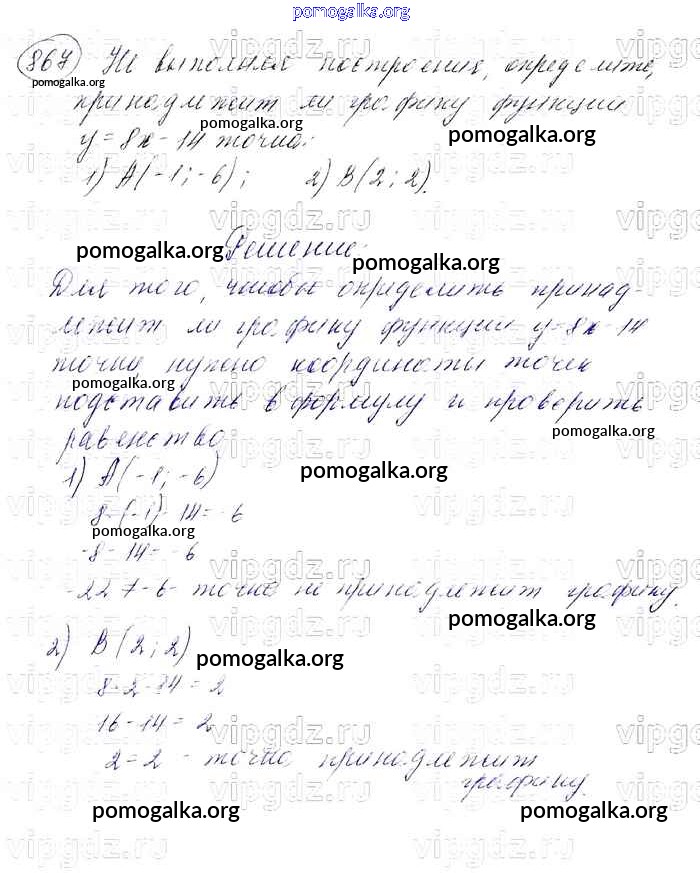 pomogalka.org
867 Не выполняя построения, определите,
pomogalka.org
принадлежит ли графику функции
pomogalka.org
pomogalka.org
y = 8x - 14 точка:
1) A(-1; -6); 2) B(2; 2).
pomogalka.org Решение:
pomogalka.org
Для того, чтобы определить принад-
лежит ли графику функции y=8x-14
точка нужно координаты точек
pomogalka.org
подставить в формулу и проверить
pomogalka.org
равенство
1) A(-1; -6)
pomogalka.org
8·(-1)-14=-6
pomogalka.org
-8-14=-6
-22≠-6 - точка не принадлежит графику.
pomogalka.org
2) B(2; 2)
pomogalka.org
8·2-14=2
16-14=2
2=2 - точка принадлежит
графику.
pomogalka.org pomogalka.org
vipgdz.ru